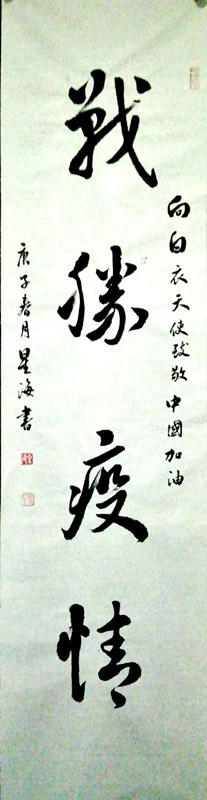 向白衣天使致敬 中國加油
戰勝疫情
庚子春月星海書